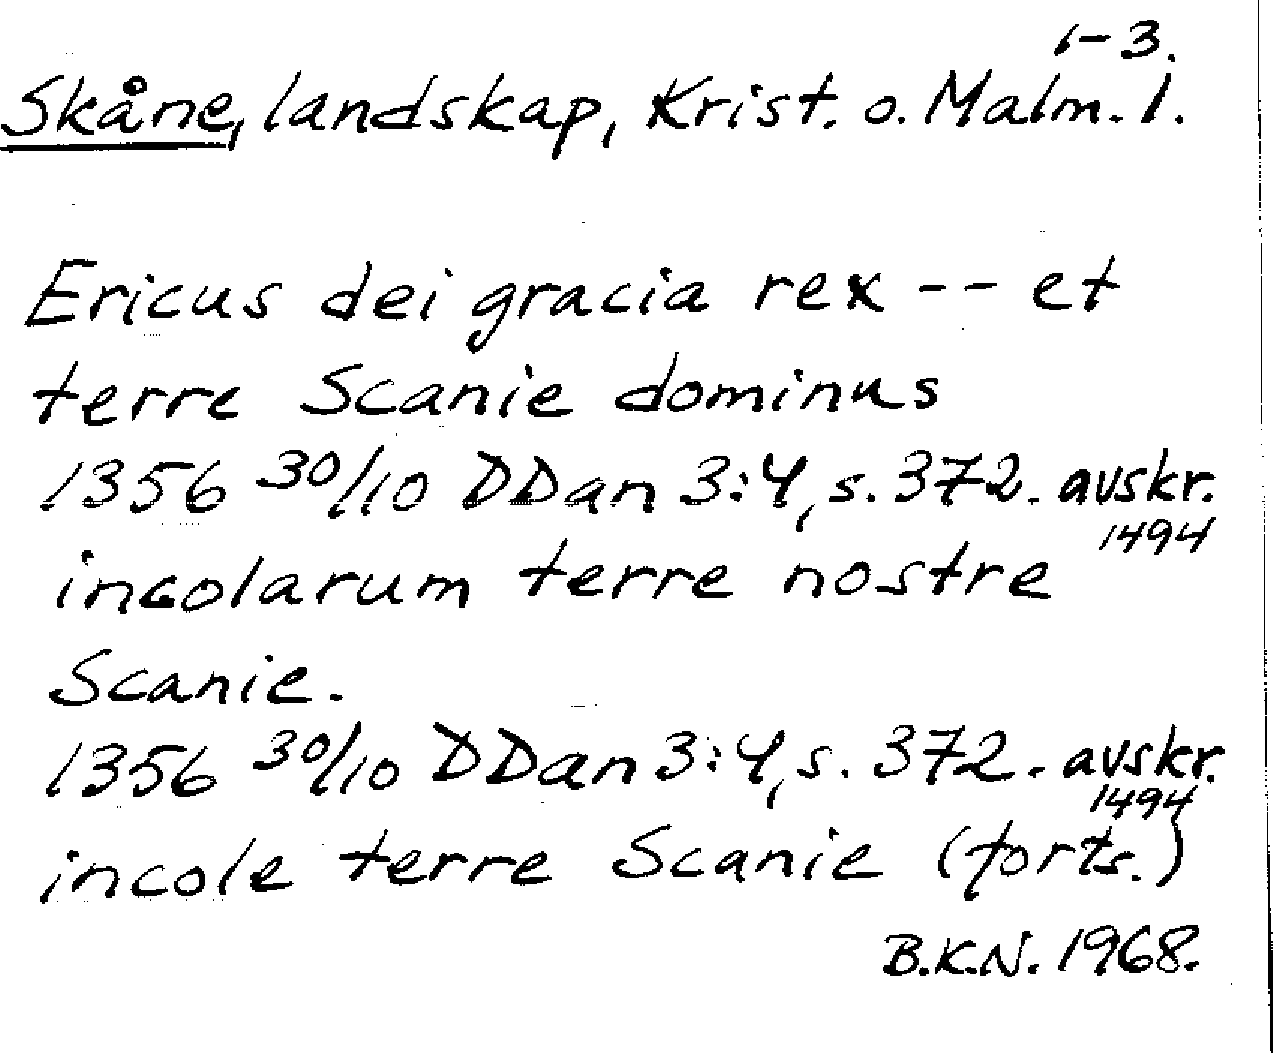 1-3.
Skåne, landskap, Krist. o. Malm. l.
Ericus dei gracia rex -- et
terre Scanie dominus
1356 30/10 DDan 3:4, s. 372. avskr.
1494
incolarum terre nostre
Scanie.
1356 30/10 DDan 3:4, s. 372. avskr.
1494
incole terre Scanie (forts.)
B.K.N. 1968.